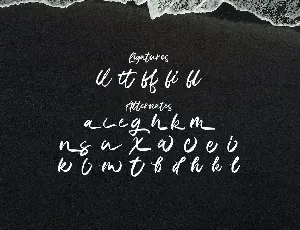 Ligatures
ll tt ff fi fl
Alternates
a c c g h k m
n s u x w v e i
k i m t b d h k l